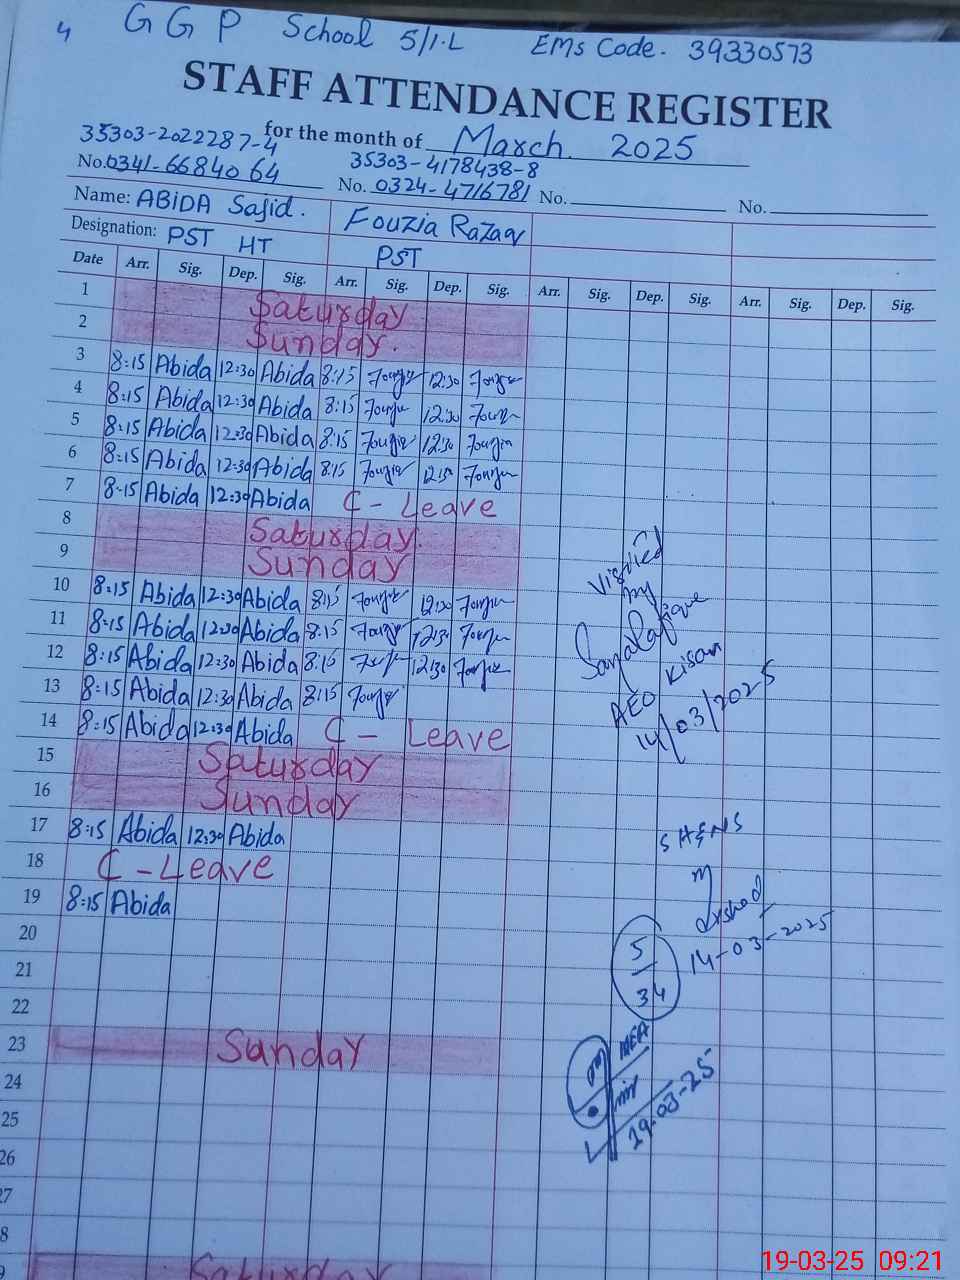 4 G G P School 5/1.L EMs Code. 39330573
STAFF ATTENDANCE REGISTER
for the month of March 2025
35303-2022287-4 35303-4178438-8
No. 0341-6684064 No. 0324-4716781 No. No.
Name: ABiDA Sajid. Fouzia Razaq
Designation: PST HT PST
Date Arr. Sig. Dep. Sig. Arr. Sig. Dep. Sig. Arr. Sig. Dep. Sig. Arr. Sig. Dep. Sig.
1 Saturday
2 Sunday.
3 8:15 Abida 12:30 Abida 8:15 12:30
4 8:15 Abida 12:30 Abida 8:15 12:30
5 8:15 Abida 12:30 Abida 8:15 12:30
6 8:15 Abida 12:30 Abida 8:15 12:30
7 8:15 Abida 12:30 Abida C - Leave
8 Saturday.
9 Sunday
10 8:15 Abida 12:30 Abida 8:15 12:30
11 8:15 Abida 12:30 Abida 8:15 12:30
12 8:15 Abida 12:30 Abida 8:15 12:30
13 8:15 Abida 12:30 Abida 8:15
14 8:15 Abida 12:30 Abida C - Leave
15 Saturday
16 Sunday
17 8:15 Abida 12:30 Abida
18 C - Leave
19 8:15 Abida
20
21
22
23 Sunday
24
25
26
27
8
9 Saturday
Visited
by
AEO Kisan
14/03/2025
14-03-2025
5
34
MEA
19-03-25
19-03-25 09:21